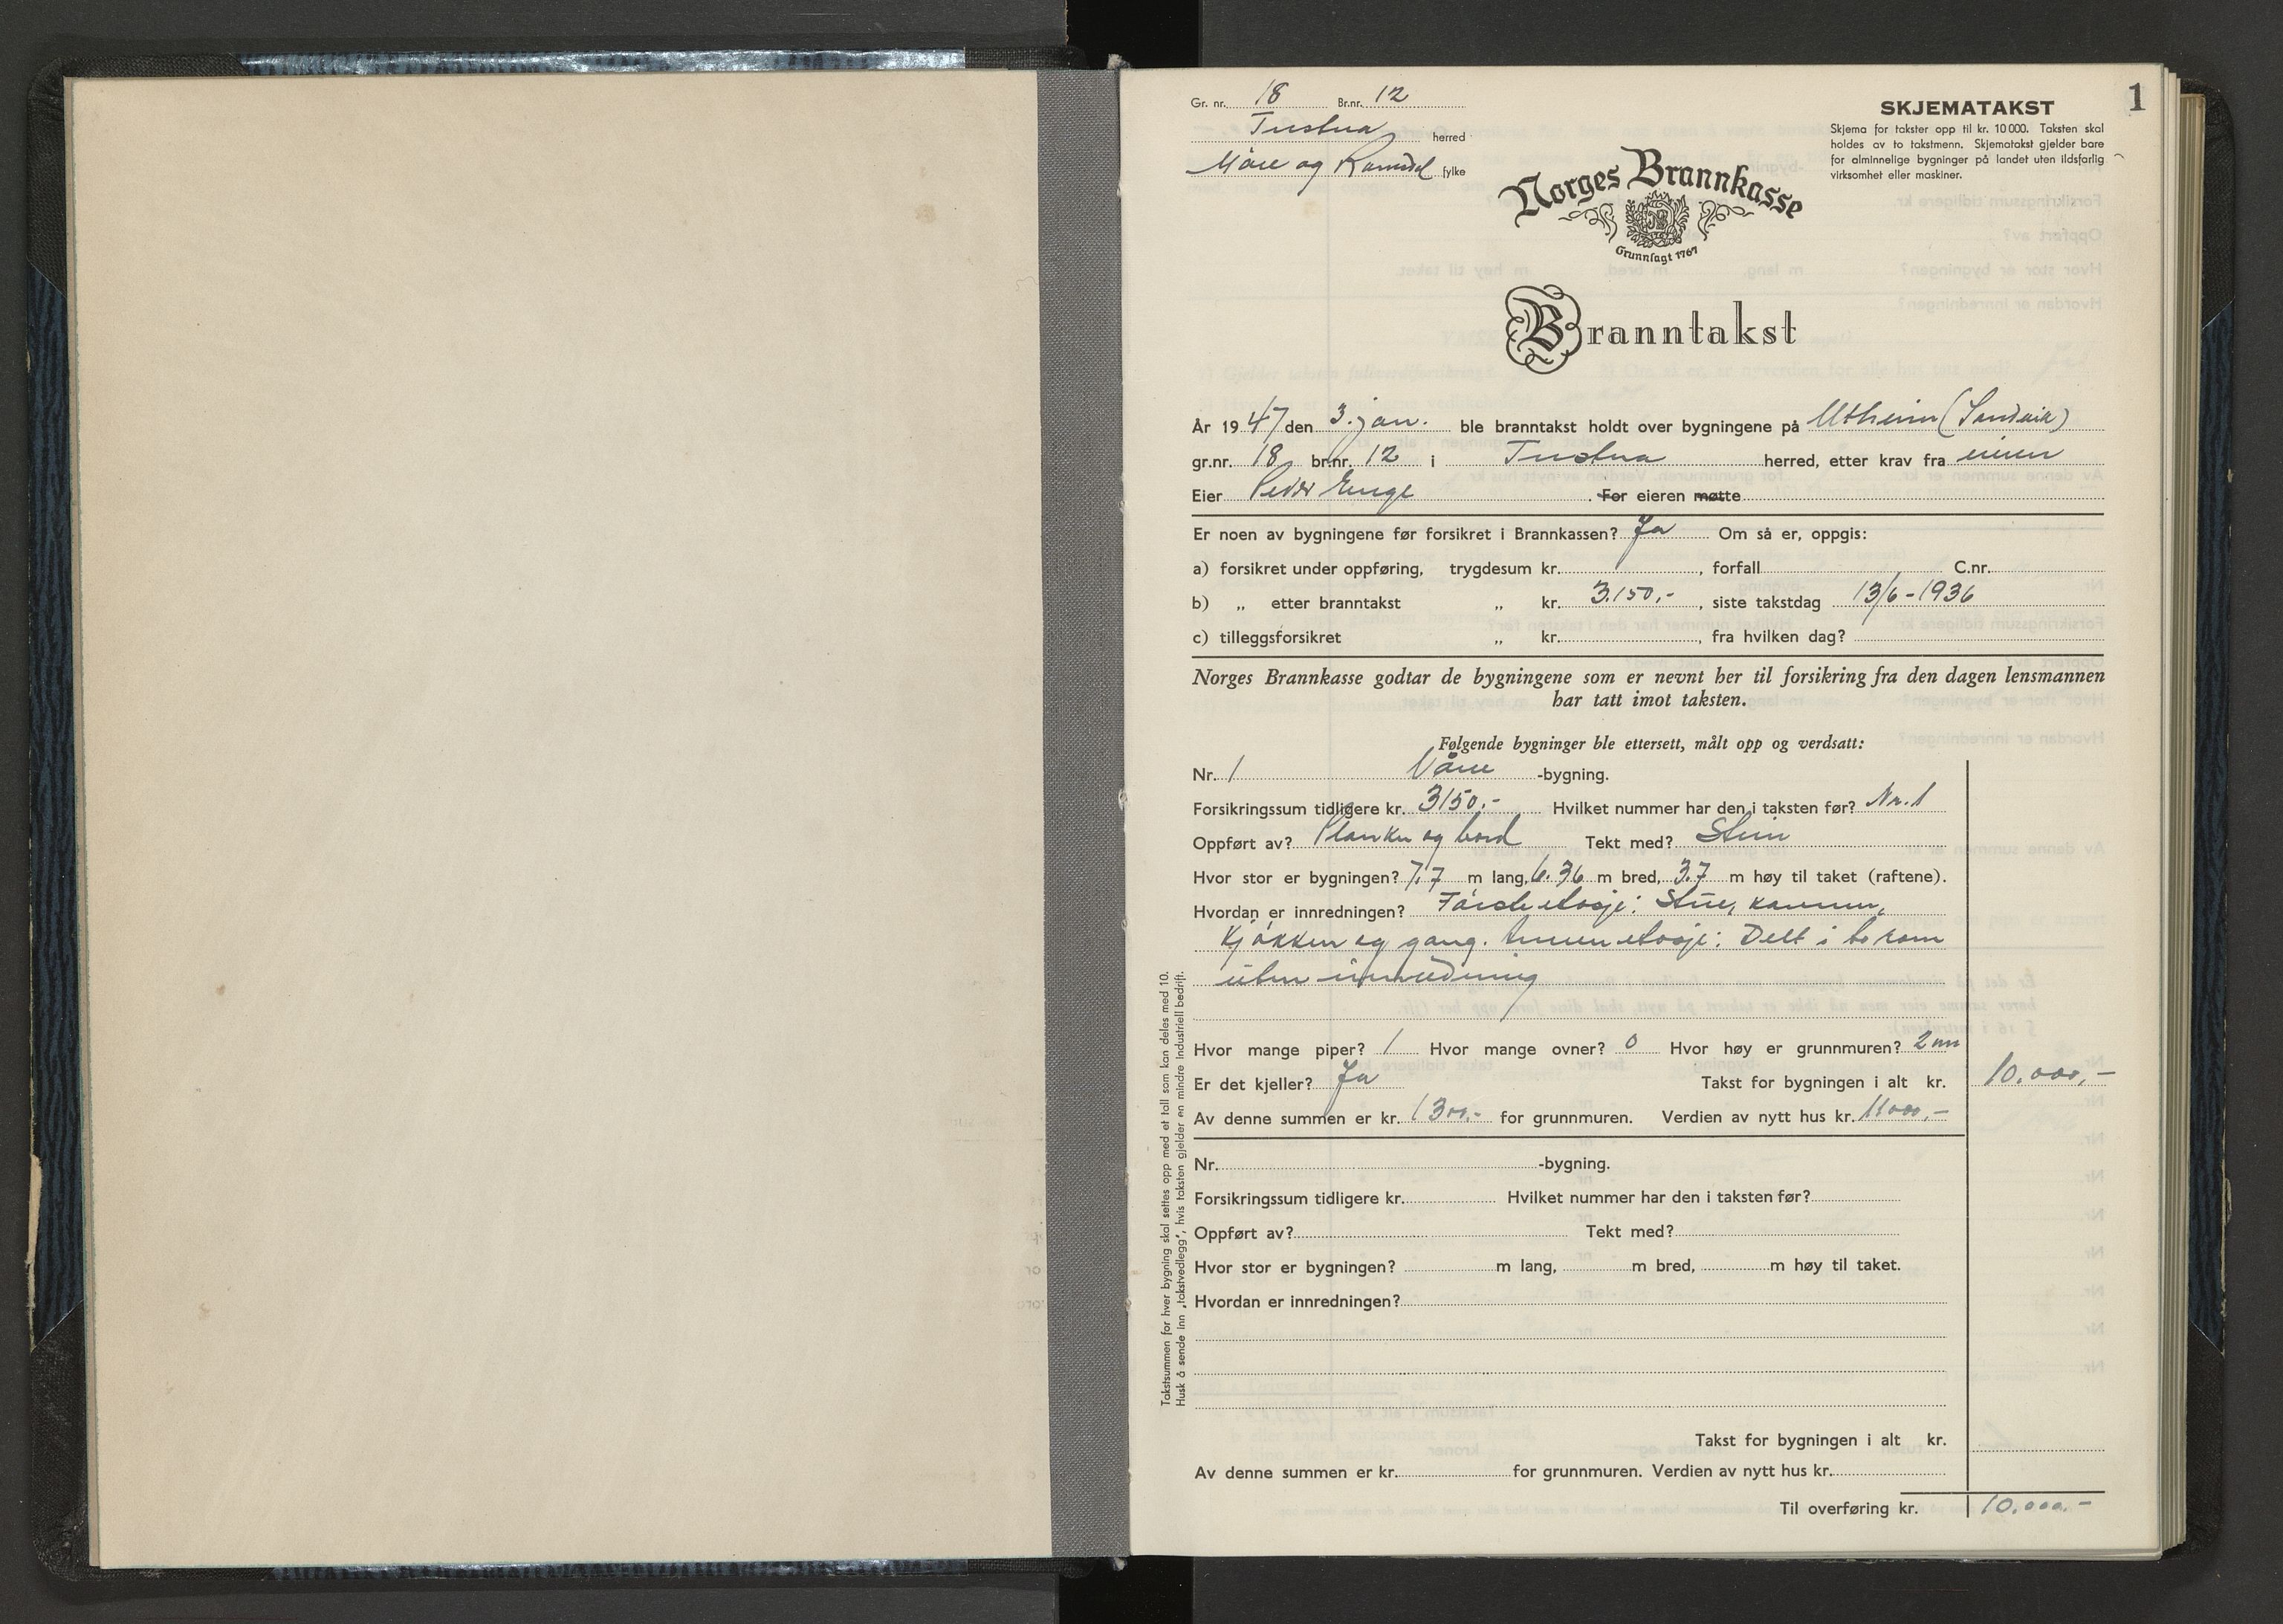 1
Gr. nr. 18 Br.nr. 12
Tustna herred
Møre og Romsdal fylke
SKJEMATAKST
Skjema for takster opp til kr. 10 000. Taksten skal
holdes av to takstmenn. Skjematakst gjelder bare
for alminnelige bygninger på landet uten ildsfarlig
virksomhet eller maskiner.
Norges Brannkasse
Grunnlagt 1767
Branntakst
År 1947 den 3. jan. ble branntakst holdt over bygningene på Utheim (Sandvik)
gr.nr. 18 br.nr. 12 i Tustna herred, etter krav fra eieren
Eier Peder Enge . For eieren møtte
Er noen av bygningene før forsikret i Brannkassen? Ja Om så er, oppgis:
a) forsikret under oppføring, trygdesum kr. , forfall C.nr.
b) „ etter branntakst „ kr. 3.150,- , siste takstdag 13/6-1936
c) tilleggsforsikret „ kr. , fra hvilken dag?
Norges Brannkasse godtar de bygningene som er nevnt her til forsikring fra den dagen lensmannen
har tatt imot taksten.
Følgende bygninger ble ettersett, målt opp og verdsatt:
Nr. 1 Våne -bygning.
Forsikringssum tidligere kr. 3150.- Hvilket nummer har den i taksten før? Nr. 1
Oppført av? Planker og bord Tekt med? Stein
Hvor stor er bygningen? 7.7 m lang, 6.36 m bred, 3.7 m høy til taket (raftene).
Hvordan er innredningen? Første etasje: Stue, kammer,
kjøkken og gang. Annen etasje: Delt i to rom
uten innredning
Hvor mange piper? 1 Hvor mange ovner? 0 Hvor høy er grunnmuren? 2 m
Er det kjeller? Ja Takst for bygningen i alt kr. 10.000,-
Av denne summen er kr. 1300.- for grunnmuren. Verdien av nytt hus kr. 11000,-
Nr. -bygning.
Forsikringssum tidligere kr. Hvilket nummer har den i taksten før?
Oppført av? Tekt med?
Hvor stor er bygningen? m lang, m bred, m høy til taket.
Hvordan er innredningen?
Takst for bygningen i alt kr.
Av denne summen er kr. for grunnmuren. Verdien av nytt hus kr.
Til overføring kr. 10.000.-
Takstsummen for hver bygning skal settes opp med et tall som kan deles med 10.
Husk å sende inn „takstvedlegg", hvis taksten gjelder en mindre industriell bedrift.